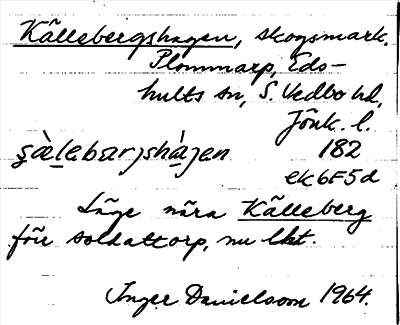 Källebergshagen, skogsmark.
Plommarp, Eds-
hults sn, S. Vedbo hd,
Jönk. l.
182
ek 6F5d
Läge nära Källeberg
för soldattorp, nu lht.
Inger Danielsson 1964.